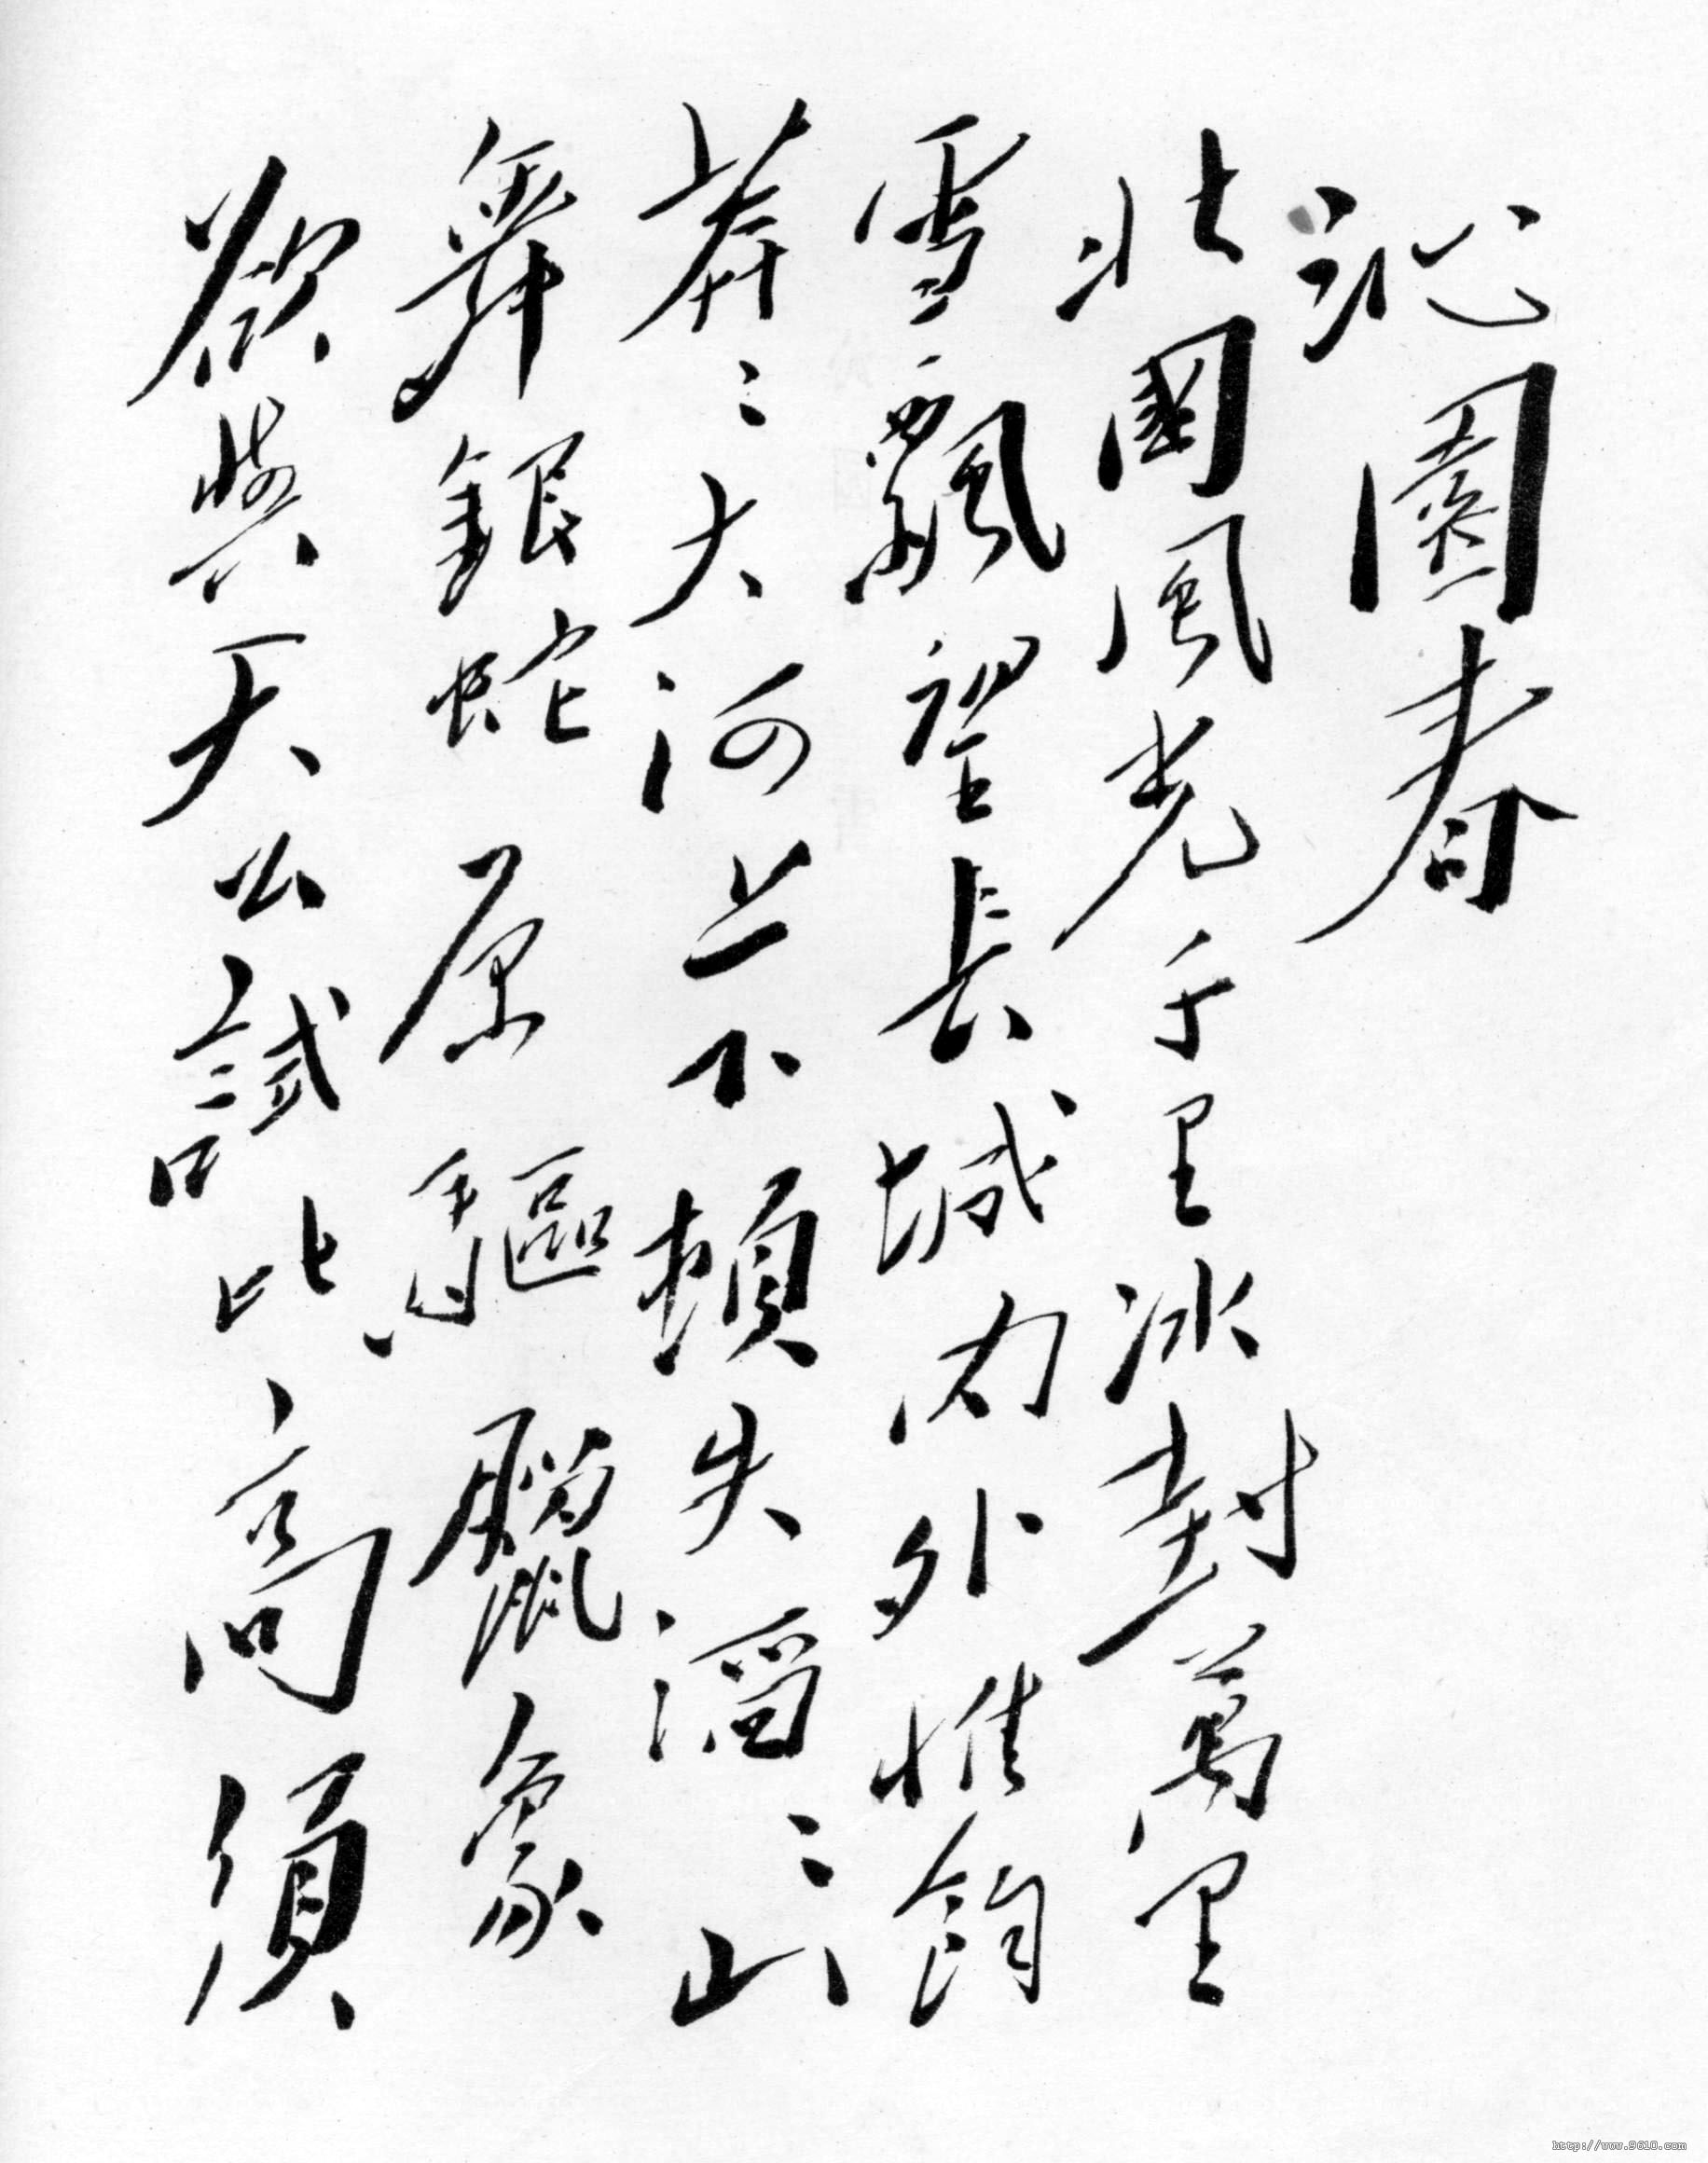 沁園春
北國風光千里冰封萬里
雪飄望長城內外惟餘
莽〻大河上下頓失滔〻山
舞銀蛇原驅臘象
欲與天公試比高須
http://www.9610.com